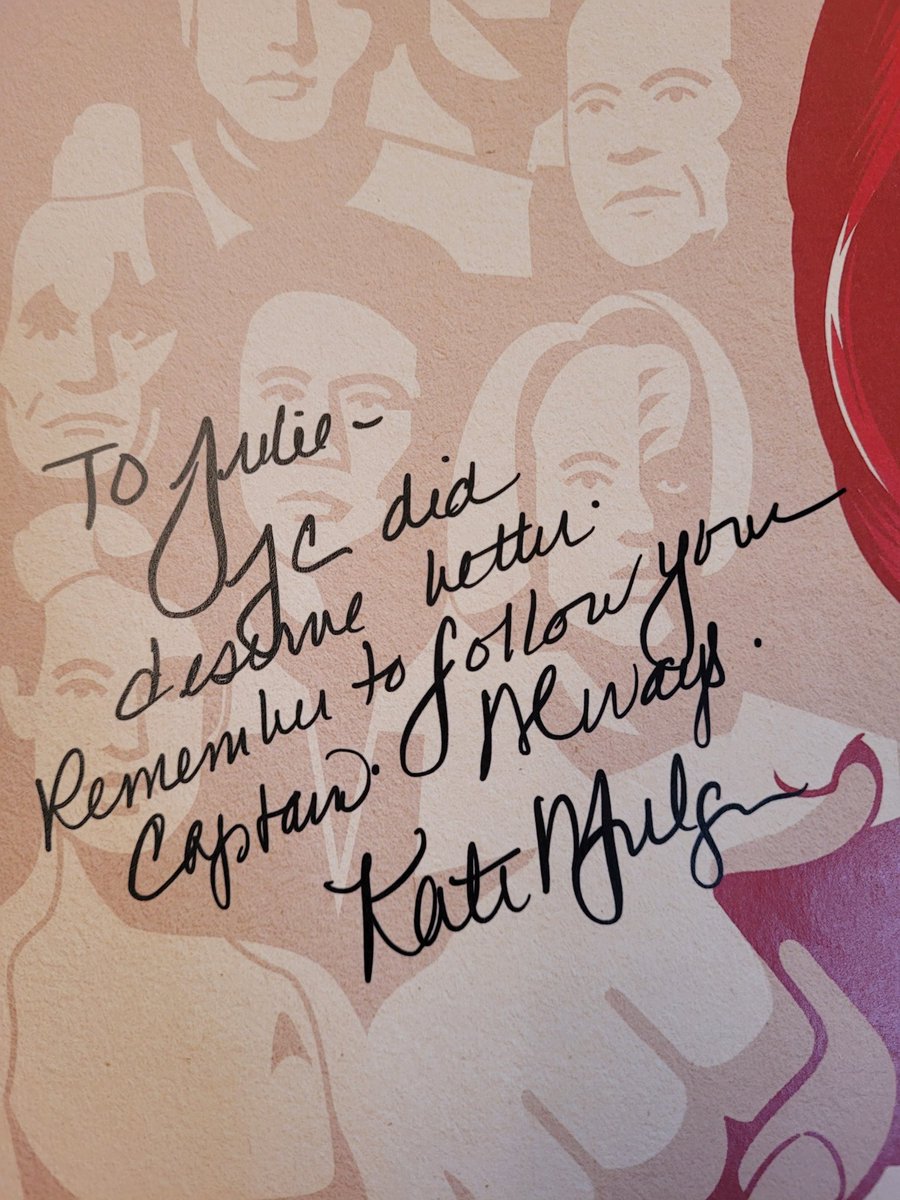 To Julie-
JC did
deserve better.
Remember to follow your
Captain. Always.
Kate Mulgrew